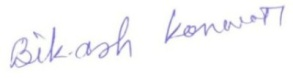 Bikash Konwar